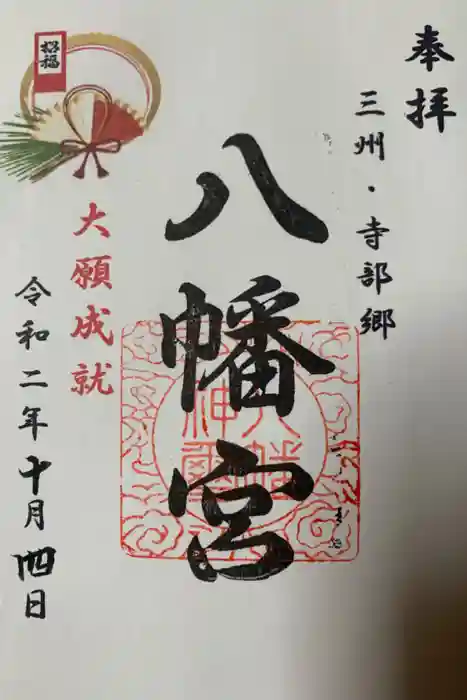 奉拝
三州・寺部郷
八幡宮
八幡
神璽
大願成就
招福
令和二年十月四日